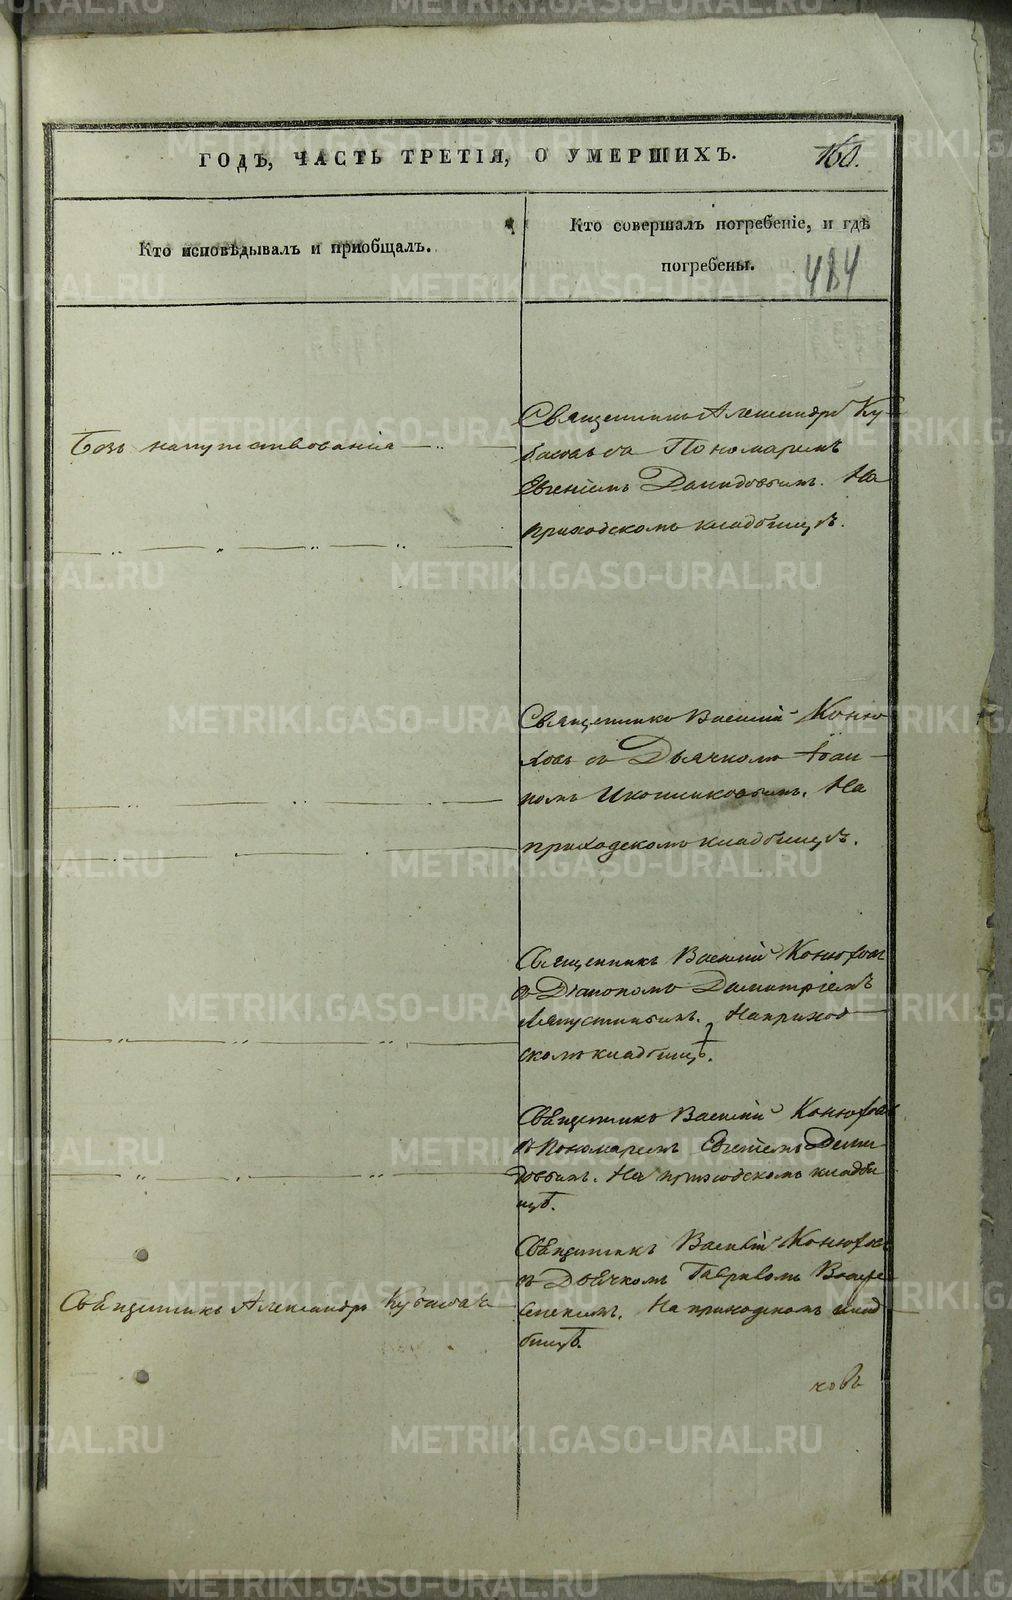 ГОДЪ, ЧАСТЬ ТРЕТІЯ, О УМЕРШИХЪ.
160.
Кто исповѣдывалъ и пріобщалъ.
Кто совершалъ погребеніе, и гдѣ
погребены.
484
Безъ напутствованія
Священникъ Александръ Ку-
съ Пономаремъ
Евгеніемъ Демидовымъ. На
приходскомъ кладбищѣ.
Священникъ Василій Коню
ховъ съ Дьячкомъ Іоан-
номъ Иконниковымъ. На
приходскомъ кладбищѣ.
Священникъ Василій Конюховъ
съ Діакономъ Димитріемъ
Ляпустинымъ. На приход
скомъ кладбищѣ.
Священникъ Василій Конюховъ
съ Пономаремъ Евгеніемъ Деми
довымъ. На приходскомъ кладби
щѣ.
Священникъ Василій Конюховъ
съ Дьячкомъ Гавриломъ Воскре
сенскимъ. На приходскомъ клад
бищѣ.
Священникъ Александръ
ковъ
METRIKI.GASO-URAL.RU